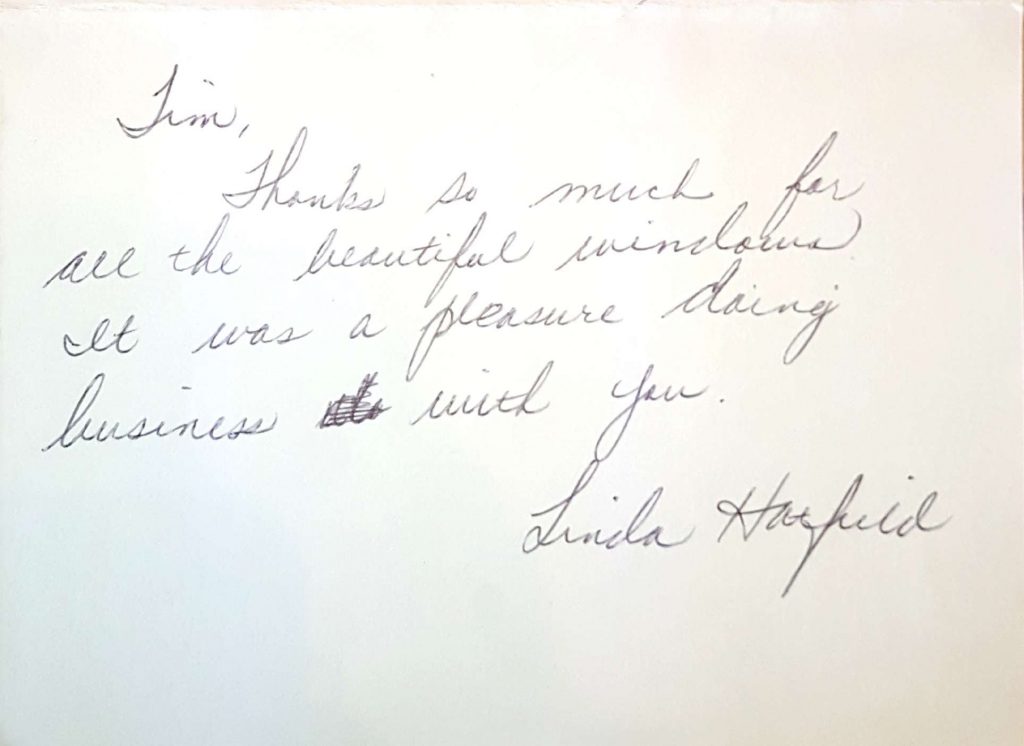 Tim,
Thanks so much for
all the beautiful windows.
It was a pleasure doing
business with you.
Linda Hatfield